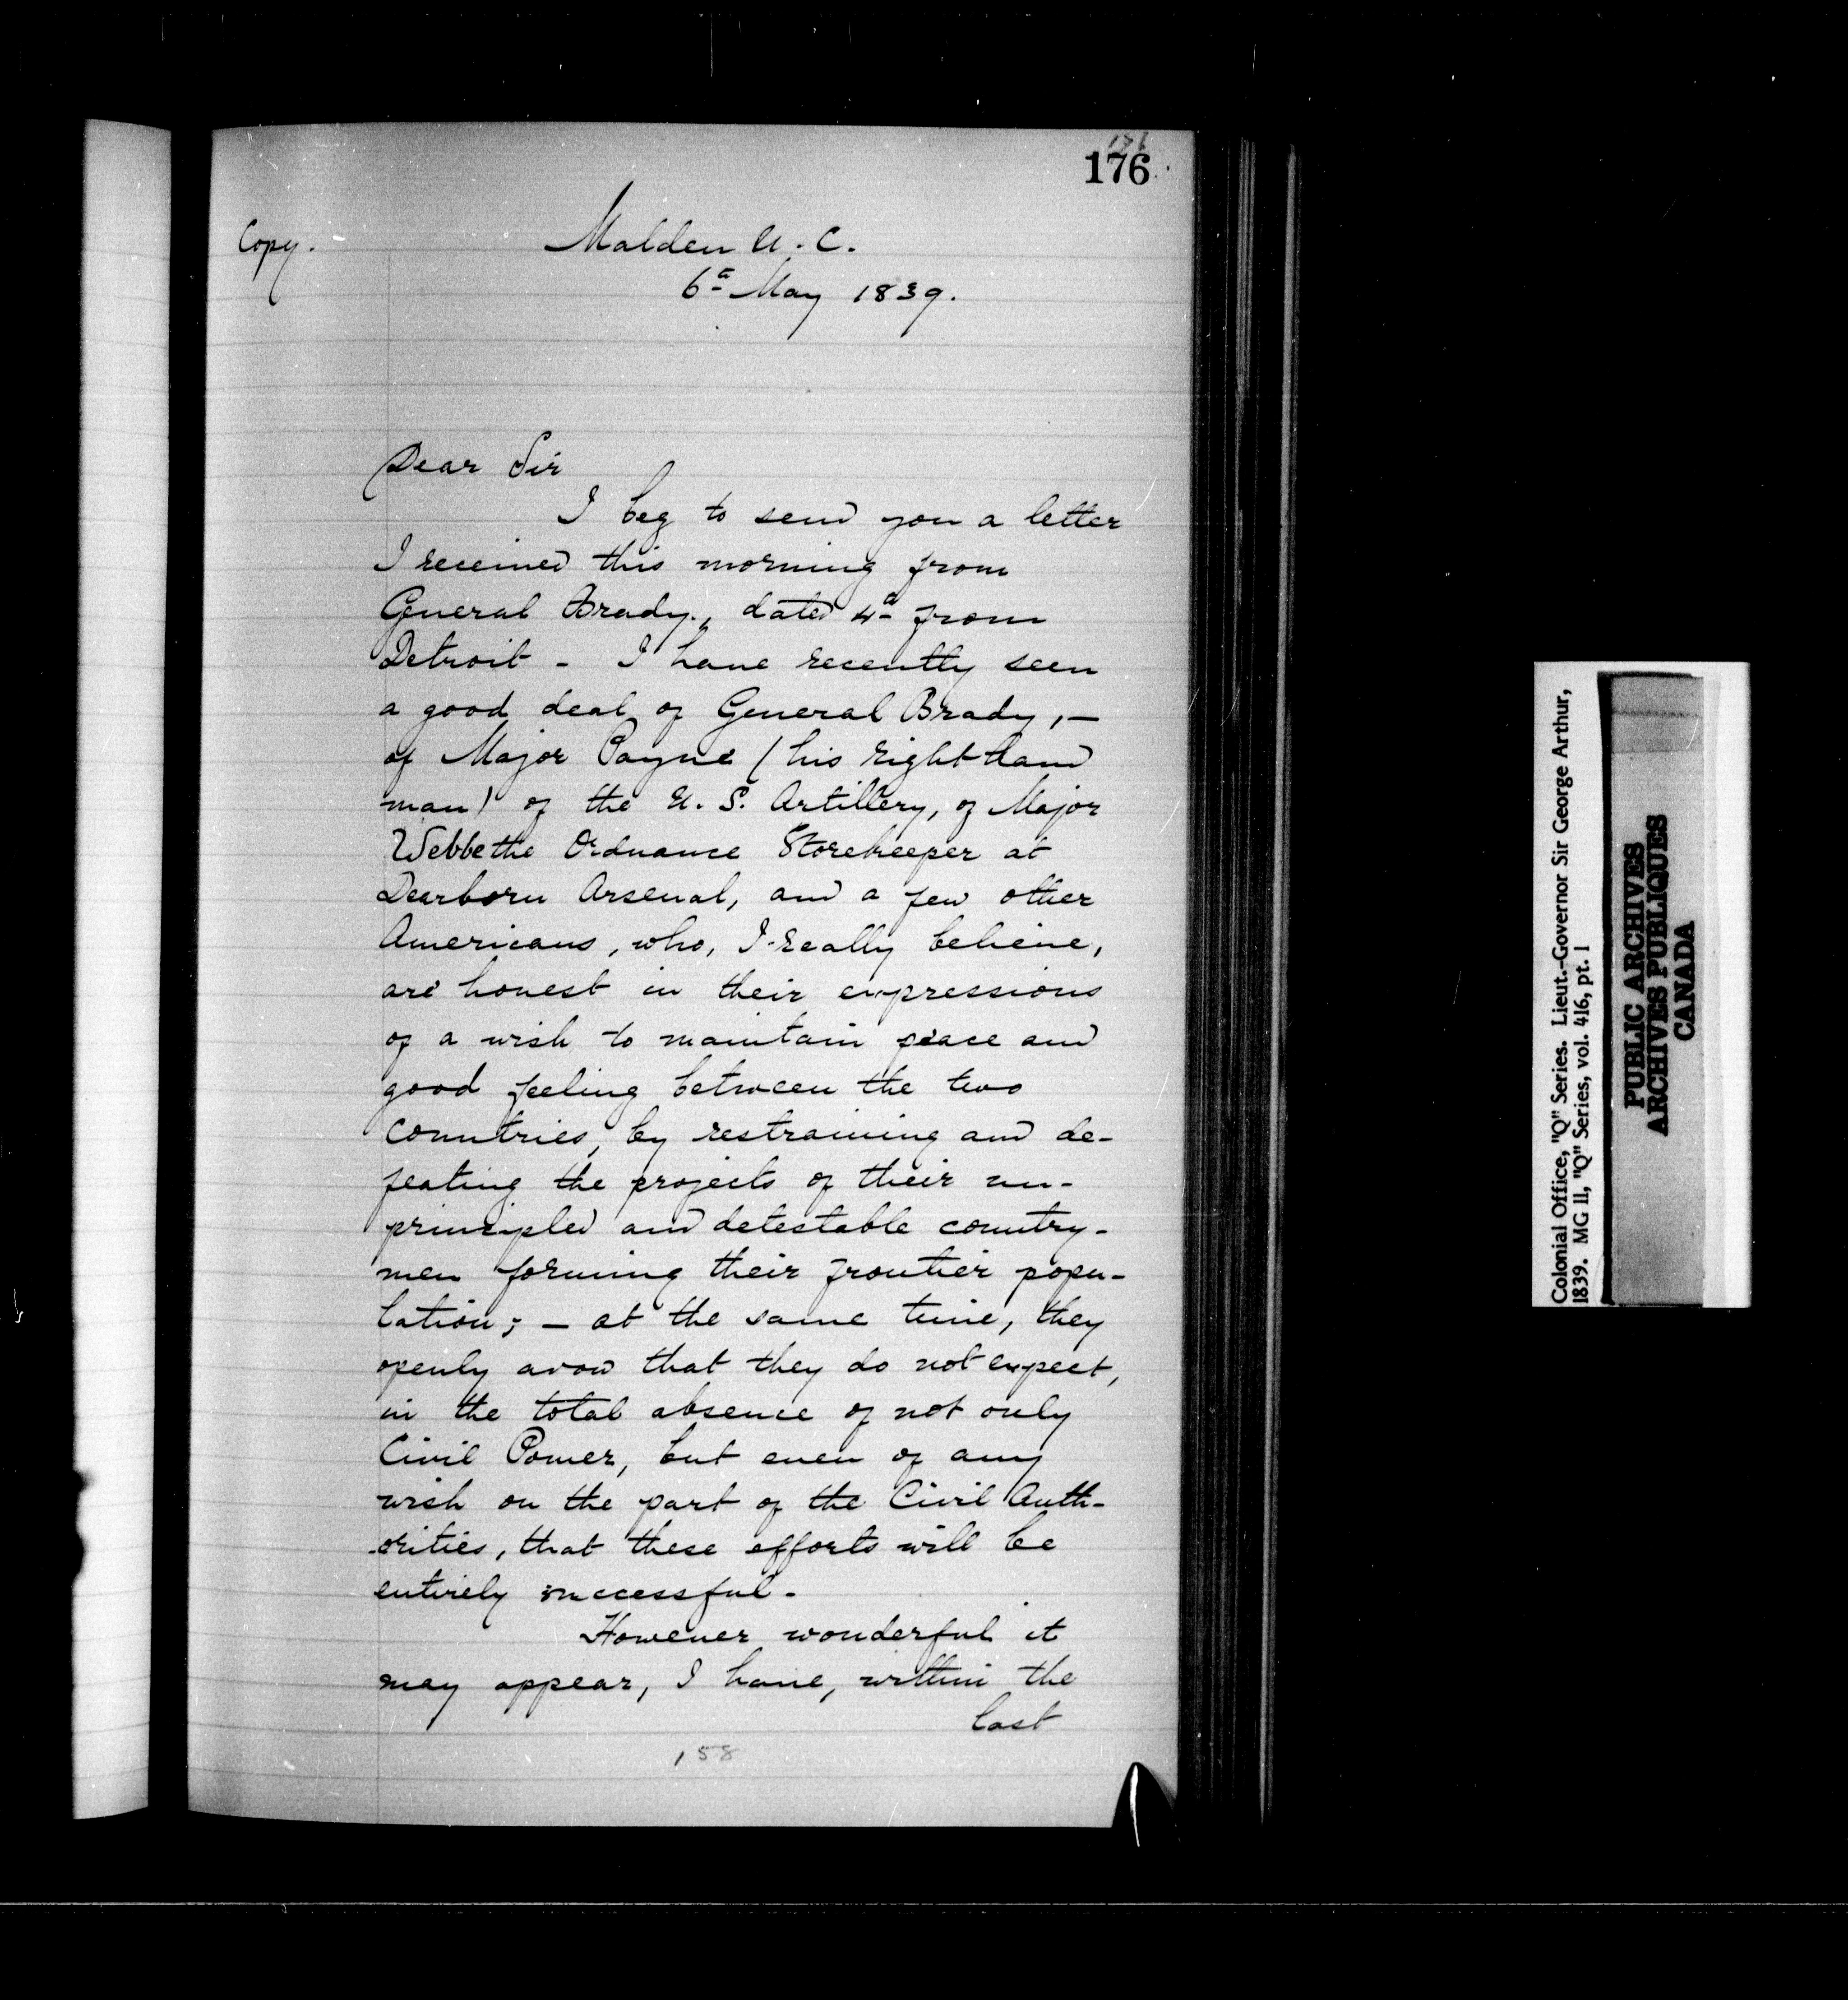 176
176
Copy.
Malden U. C.
6th May 1839.
Dear Sir
I beg to send you a letter
I received this morning from
General Brady, dated 4th from
Detroit - I have recently seen
a good deal of General Brady, —
of Major Payne (his right hand
man) of the U. S. Artillery, of Major
Webbe the Ordnance Storekeeper at
Dearborn Arsenal, and a few other
Americans, who, I really believe,
are honest in their expressions
of a wish to maintain peace and
good feeling between the two
countries, by restraining and de-
feating the projects of their un-
principled and detestable country-
men forming their frontier popu-
lation; — at the same time, they
openly avow that they do not expect,
in the total absence of not only
Civil Power, but even of any
wish on the part of the Civil Auth-
orities, that these efforts will be
entirely successful -
However wonderful it
may appear, I have, within the
last
158
Colonial Office, "Q" Series. Lieut.-Governor Sir George Arthur,
1839. MG 11, "Q" Series, vol. 416, pt. 1
PUBLIC ARCHIVES
ARCHIVES PUBLIQUES
CANADA